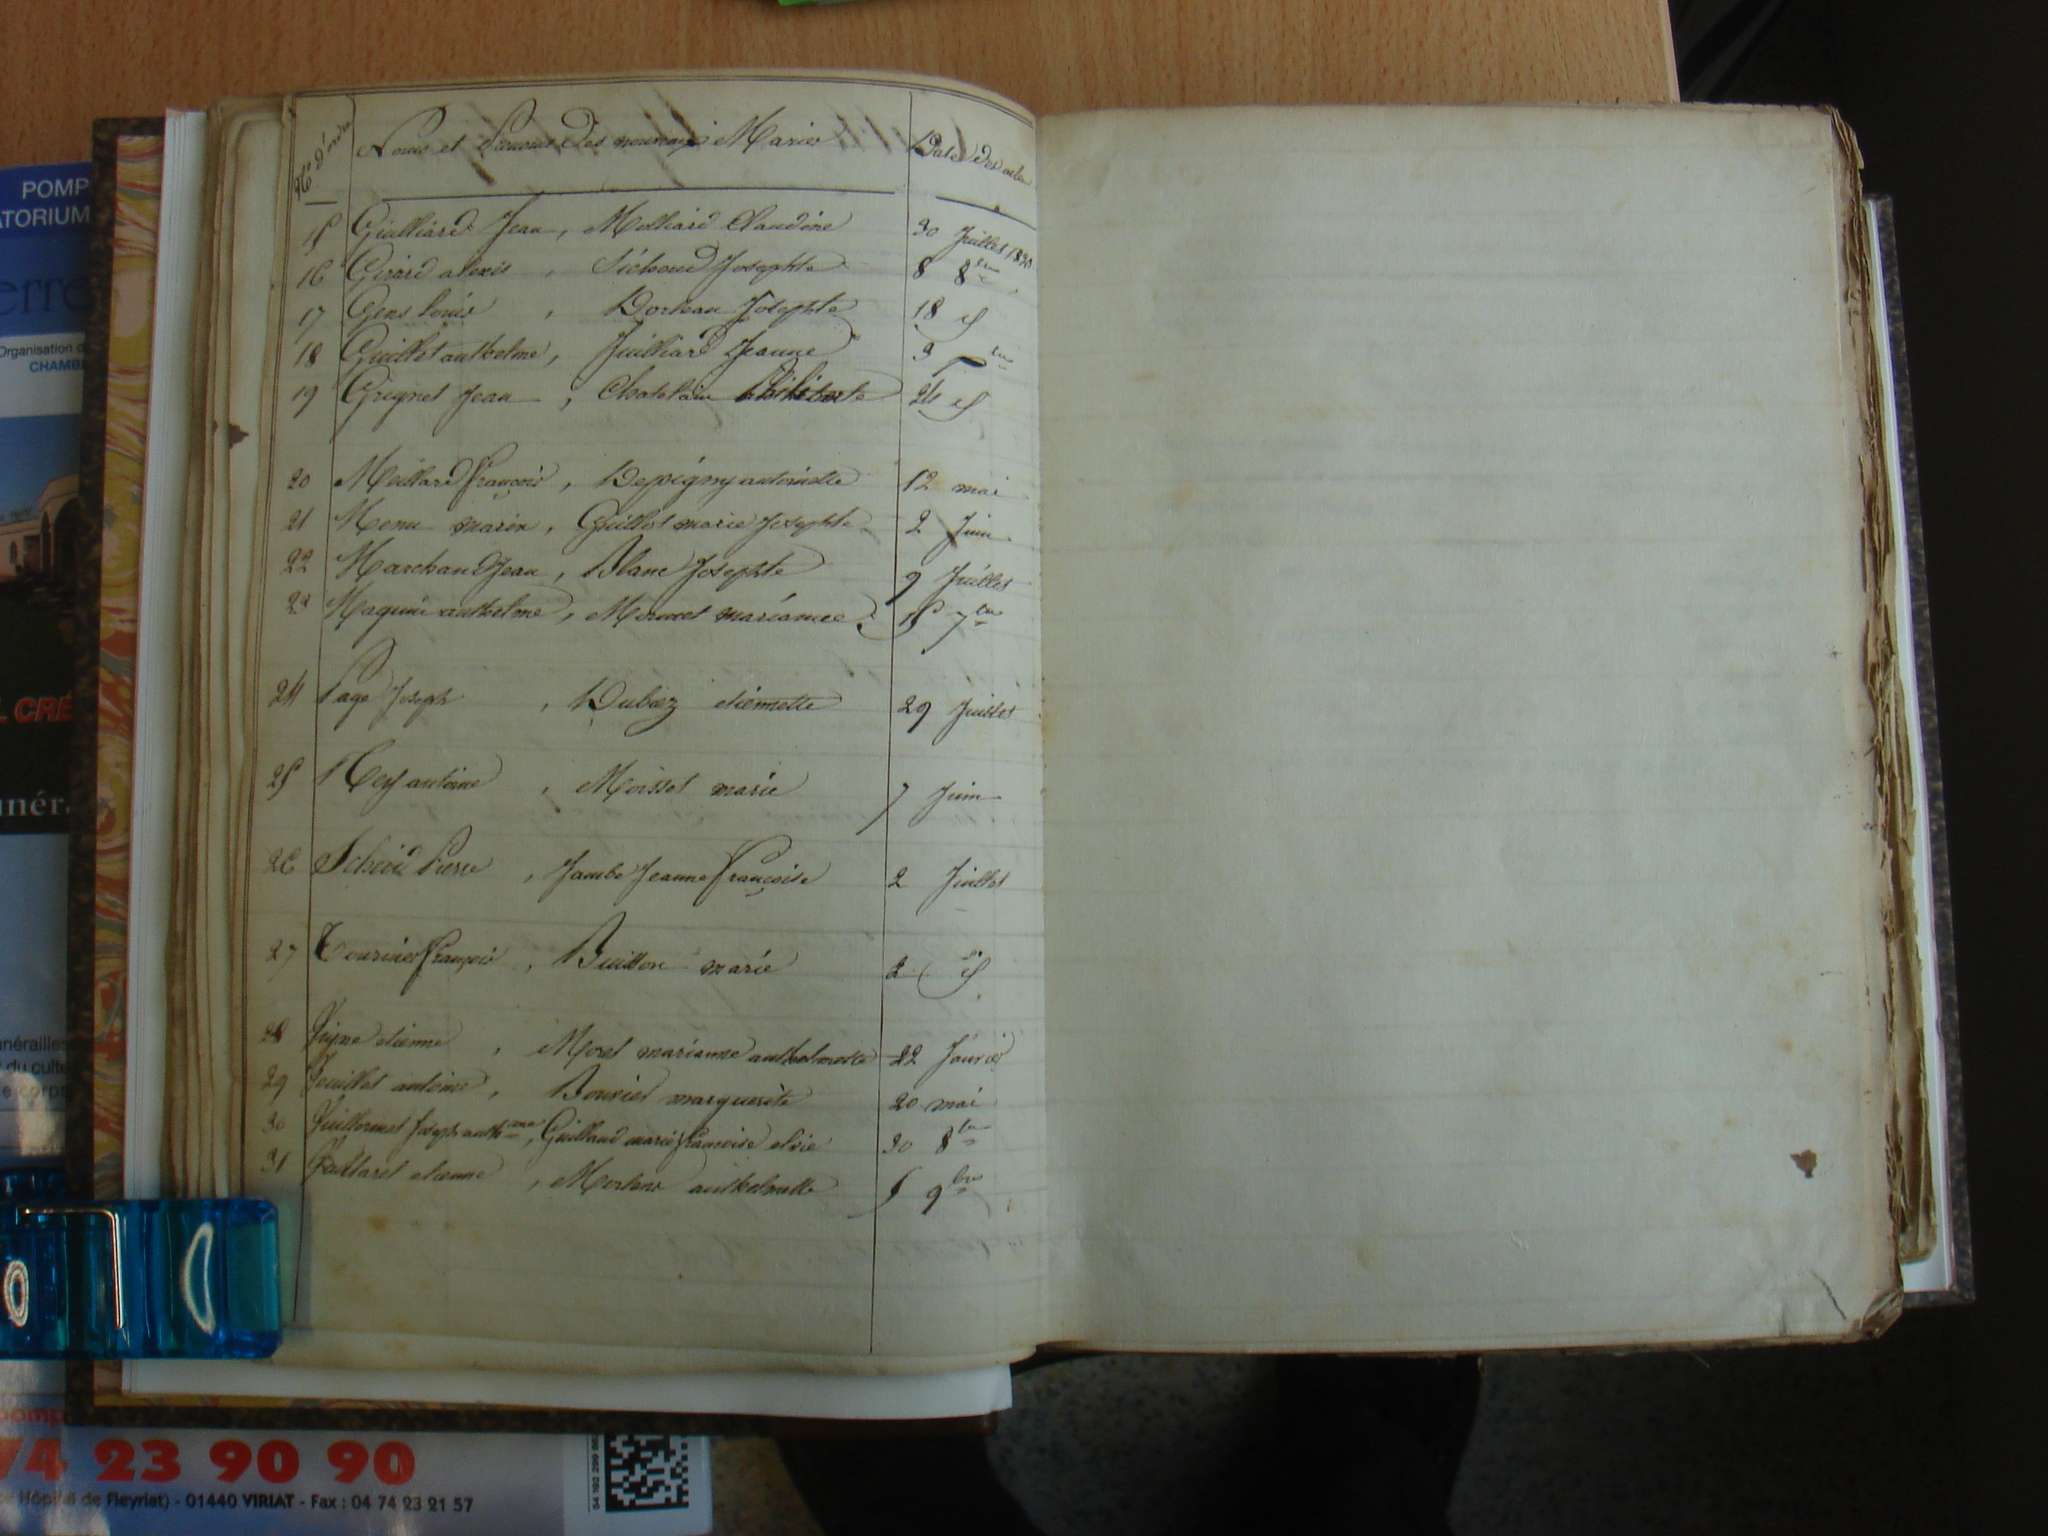 POMP
ATORIUM
erre
Organisation d
CHAMB
L CRÉ
unéra
nérailles
du culte
e corps
N° D'ordre
Noms et Prénoms des nouveaux Mariés
Date des actes
15 Guilliard Jean, Molliard Claudine 30 Juillet 1820
16 Girard alexis, Josephte 8 8bre
17 Gens louis, Josephte 18 id
18 Guillot anthelme, Juilliard Jeanne 3
19 Grignet Jean, Chatelain Philiberte 24 id
20 Meillard françois, Depigny antoinette 12 mai
21 Menu marin, Guillot marie Josephte 2 Juin
22 Marchand Jean, Blanc Josephte 9 Juillet
23 Maguin anthelme, marianne 15 7bre
24 Page Joseph, Duboz etiennette 29 Juillet
25 Rey antoine, Moisset marie 7 Juin
26 Pierre, Jambe Jeanne françoise 2 Juillet
27 Tournier françois, Buisson marie 2 id
28 Vigne etienne, Morel marianne anthelmette 22 Janvier
29 antoine, Bouvier marguerite 20 mai
30 Vuillermet Joseph anthme, Guilland marie françoise elvie 30 8bre
31 etienne, anthelmette 5 9bre
74 23 90 90
Hôpital de Fleyriat) - 01440 VIRIAT - Fax : 04 74 23 21 57